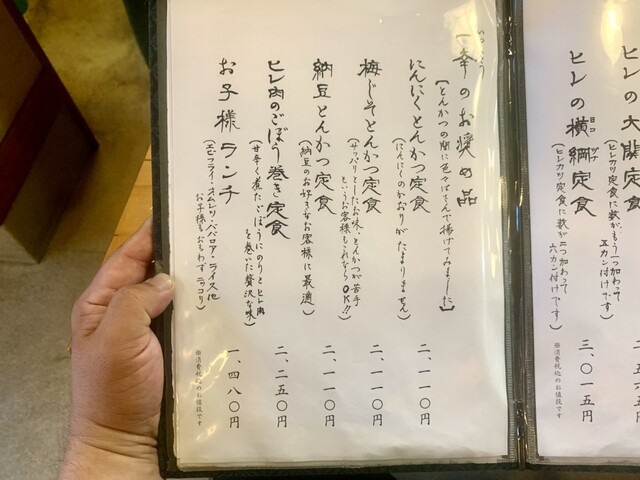 ヒレの大関定食
(ヒレカツ定食に数がもう一つ加わって
五カン付けです)
ヒレの横綱定食
ヨコヅナ
(ヒレカツ定食に数が二つ加わって
六カン付けです)
三、〇一五円
※消費税込のお値段です
一幸のお奨め品
いっこう
【とんかつの間に色々はさんで揚げてみました】
にんにくとんかつ定食
(にんにくのかおりがたまりません)
二、一一〇円
梅じそとんかつ定食
(サッパリとしたお味・とんかつが苦手
というお客様もこれならOK!!)
二、一一〇円
納豆とんかつ定食
(納豆のお好きなお客様に最適)
二、一一〇円
ヒレ肉のごぼう巻き定食
(甘辛く煮たごぼうにのりとヒレ肉
を巻いた贅沢な味)
二、二五〇円
お子様ランチ
(エビフライ・オムレツ・ババロア・ライス他
お子様もおもわずニコリ)
一、四八〇円
※消費税込のお値段です